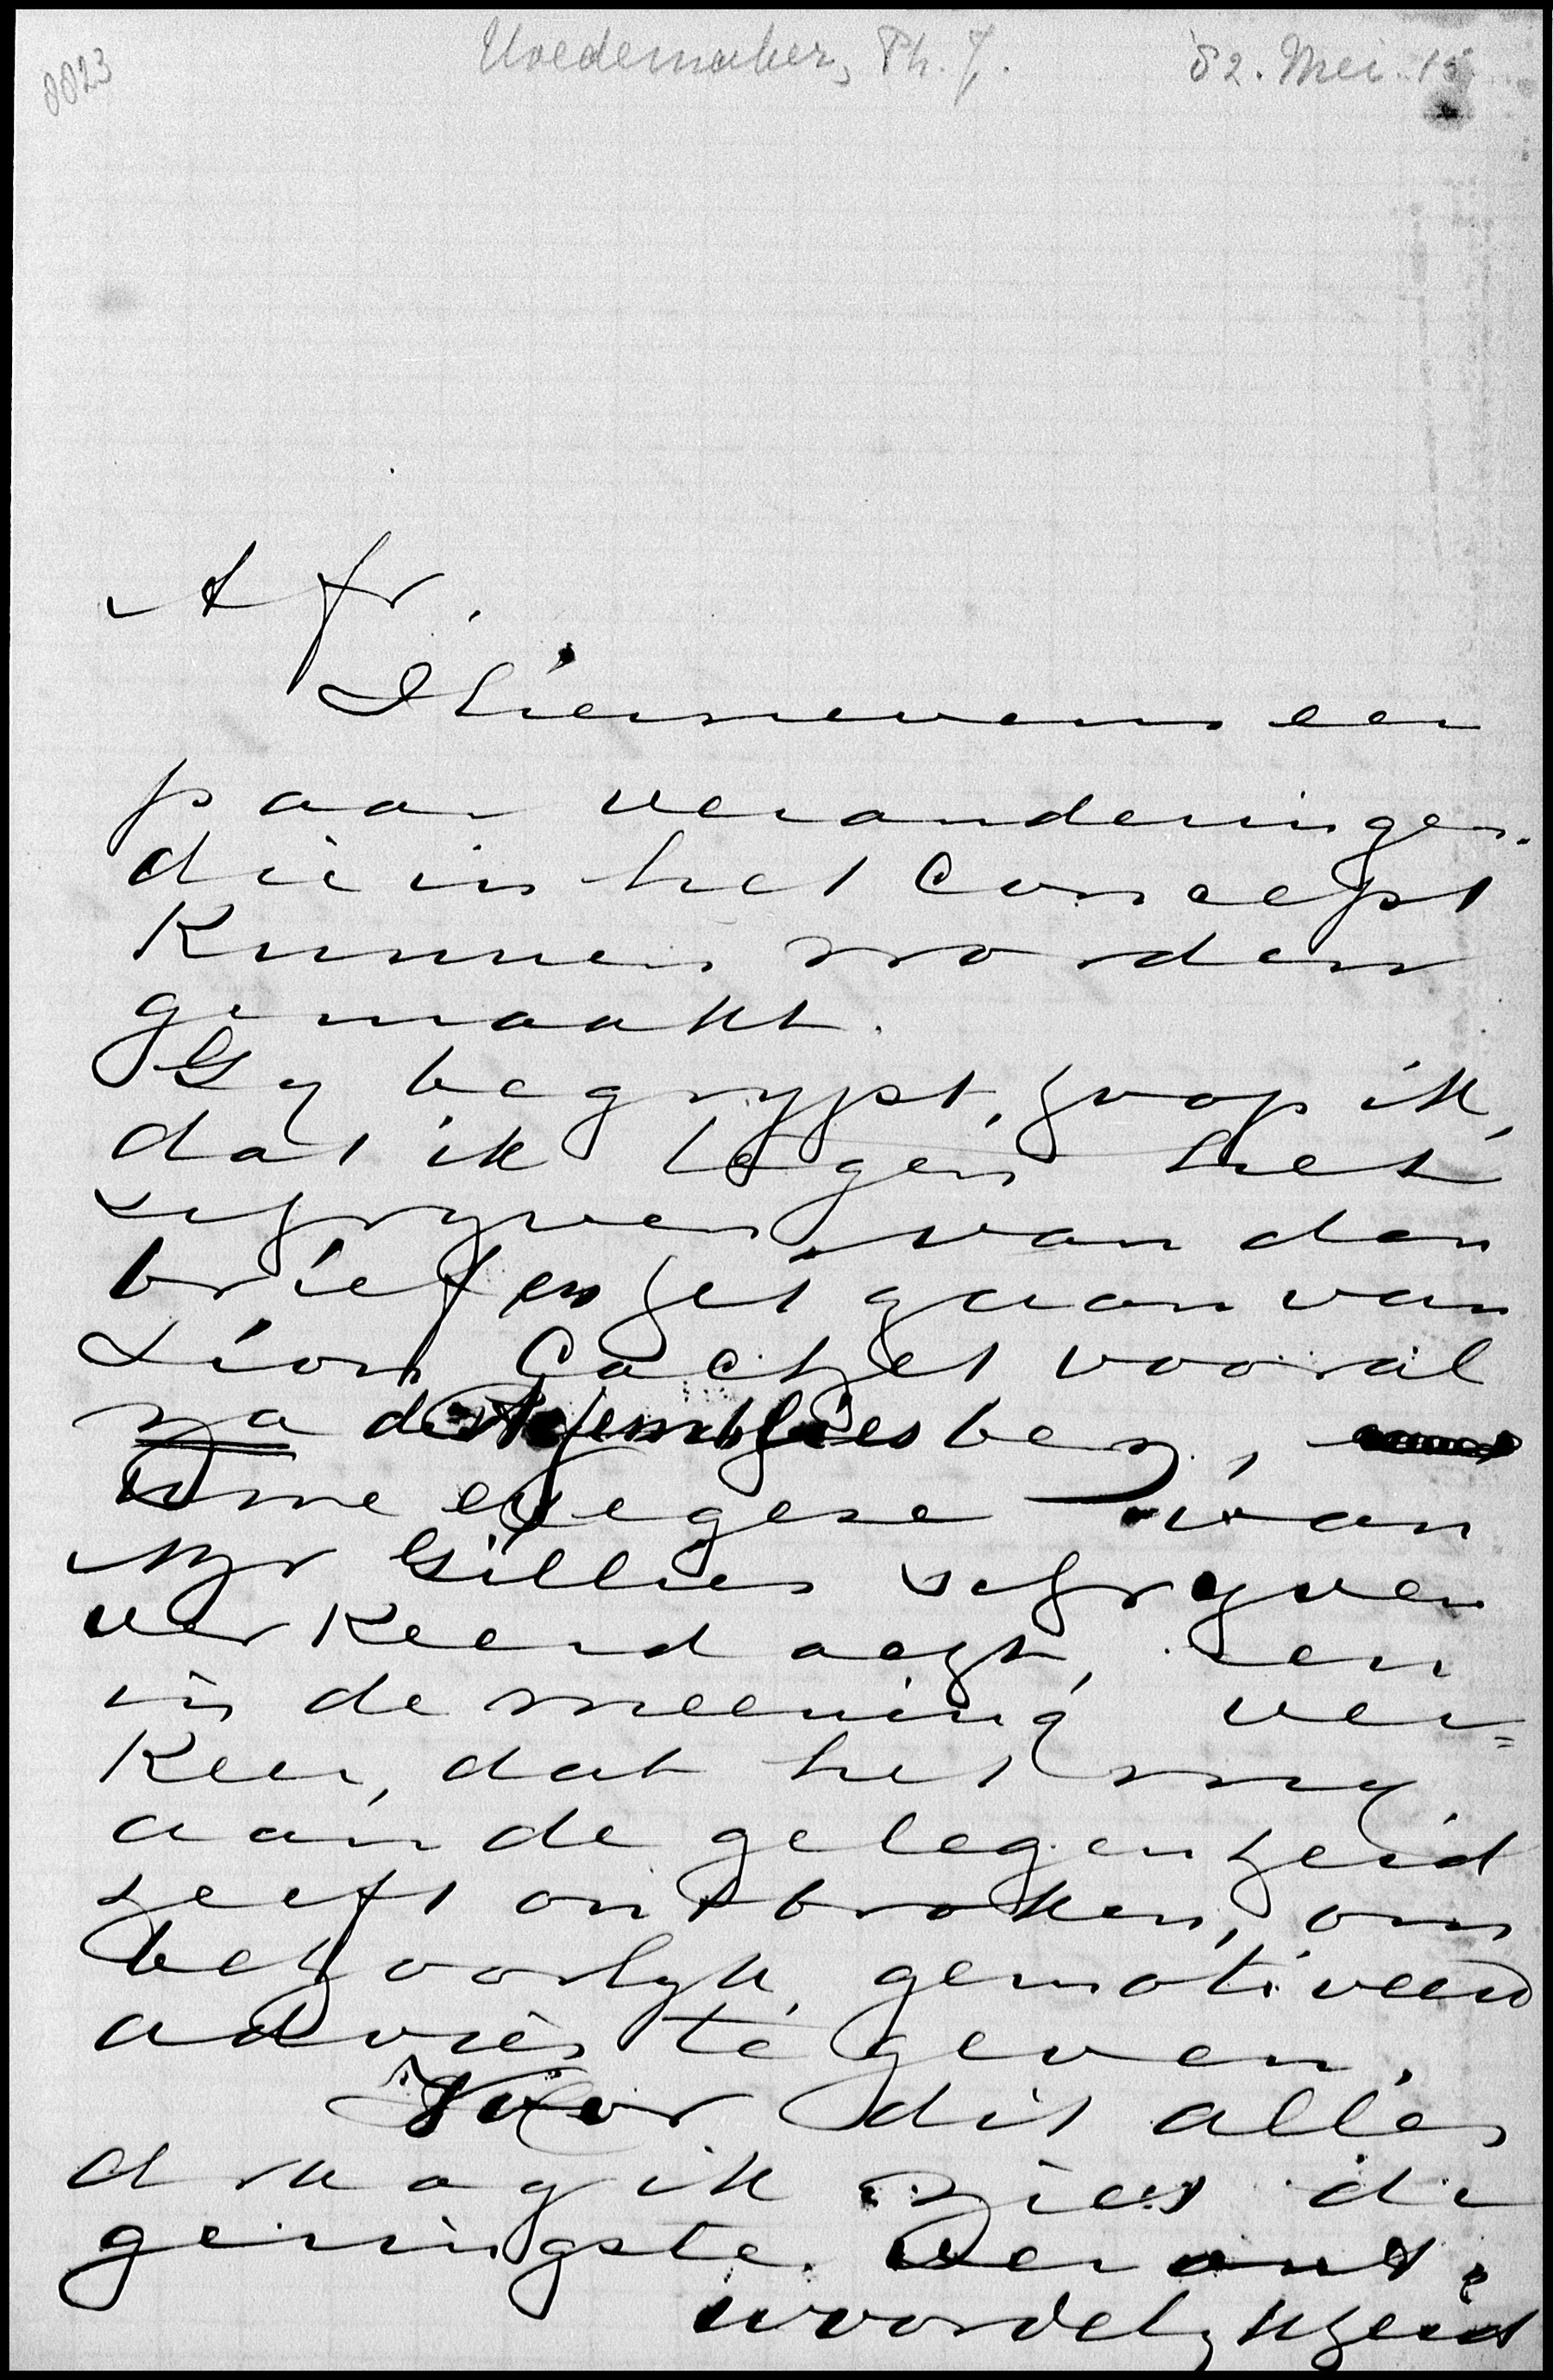 0023
Hoedemaker, Ph. J. 82. Mei. 15
A fr.
Hiernevens een
paar veranderingen.
die in het Concept
Kunnen worden
gemaakt.
Gy begrypt, hoop ik,
dat ik tegen het
schryven van den
brief en het gaan van
Lion Cachet vooral
na de
exegese van
Mr Gillies schryven
verkeerd acht, en
in de meening ver=
keer, dat het my
aan de gelegenheid
heeft ontbroken, om
behoorlyk gemotiveerd
advies te geven.
Voor dit alles
draag ik niet de
geringste verant=
woordelykheid